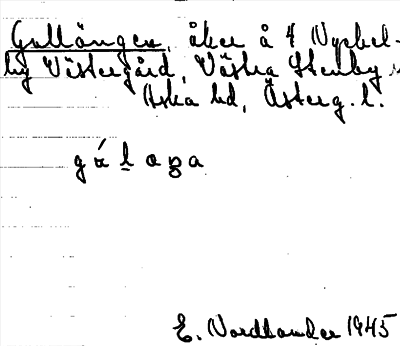 Gullängen, åker å 4 Nyckel-
by Västergård, Västra Stenby s
Aska hd, Österg. l.
E. Nordlander 1945